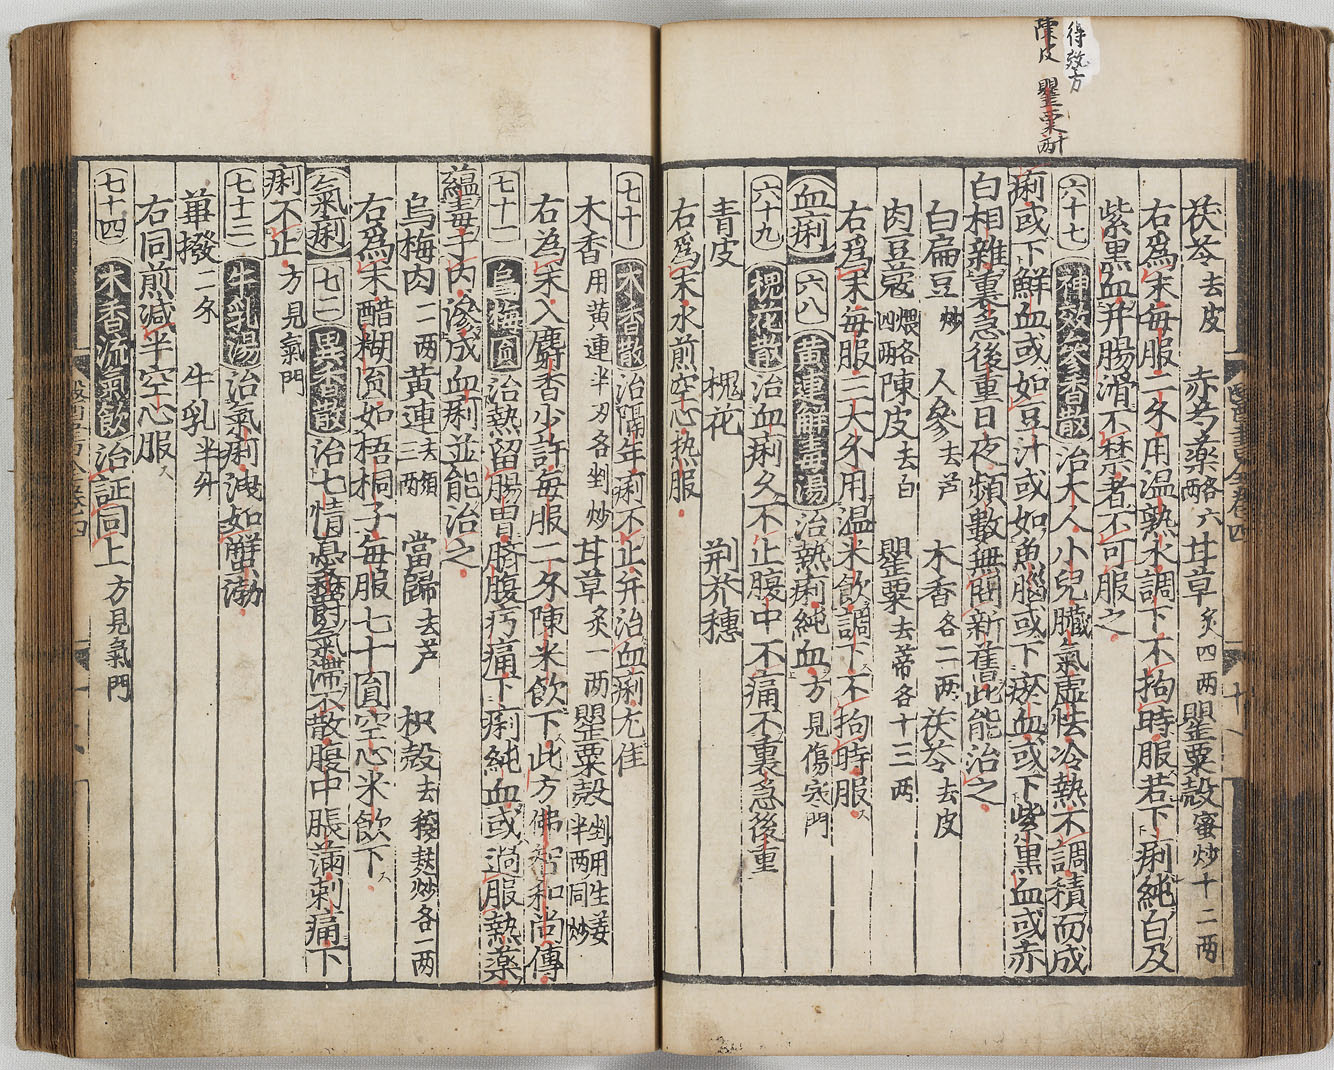 得效方
陳皮 罌粟各十二两
茯苓去皮 赤芍藥各六两 甘草炙四两 罌粟殼蜜炒十二两
右爲末每服二錢用温熟水調下不拘時服若下痢純白及
紫黑血并腸滑不禁者不可服之
六十七 神效參香散 治大人小兒臟氣虛怯冷熱不調積而成
痢或下鮮血或如豆汁或如魚腦或下瘀血或下紫黑血或赤
白相雜裏急後重日夜頻數無問新舊此能治之
白扁豆炒 人參去芦 木香各二两 茯苓去皮
肉豆蔻煨各四两 陳皮去白 罌粟去蒂各十二两
右爲末每服三大錢用温米飲調下不拘時服
血痢 六八 黄連解毒湯 治熱痢純血方見傷寒門
六十九 槐花散 治血痢久不止腹中不痛不裏急後重
青皮 槐花 荆芥穗
右爲末水煎空心熱服
七十 木香散 治隔年痢不止并治血痢尤佳
木香用黄連半两各剉炒 甘草炙一两 罌粟殼剉用生姜半两同炒
右为末入麝香少許每服二錢陳米飲下此方佛智和尚傳
七十一 烏梅圓 治熱留腸胃臍腹㽲痛下痢純血或過服熱藥
藴毒于内滲成血痢並能治之
烏梅肉一两 黄連去鬚三两 當歸去芦 枳殼去穰麸炒各一两
右爲末醋糊圓如梧桐子每服七十圓空心米飲下
氣痢 七二 異香散 治七情鬱氣滯不散腹中脹滿刺痛下
痢不止方見氣門
七十三 牛乳湯 治氣痢洩如蟹渤
蓽撥二錢 牛乳半升
右同煎减半空心服
七十四 木香流氣飲 治証同上方見氣門